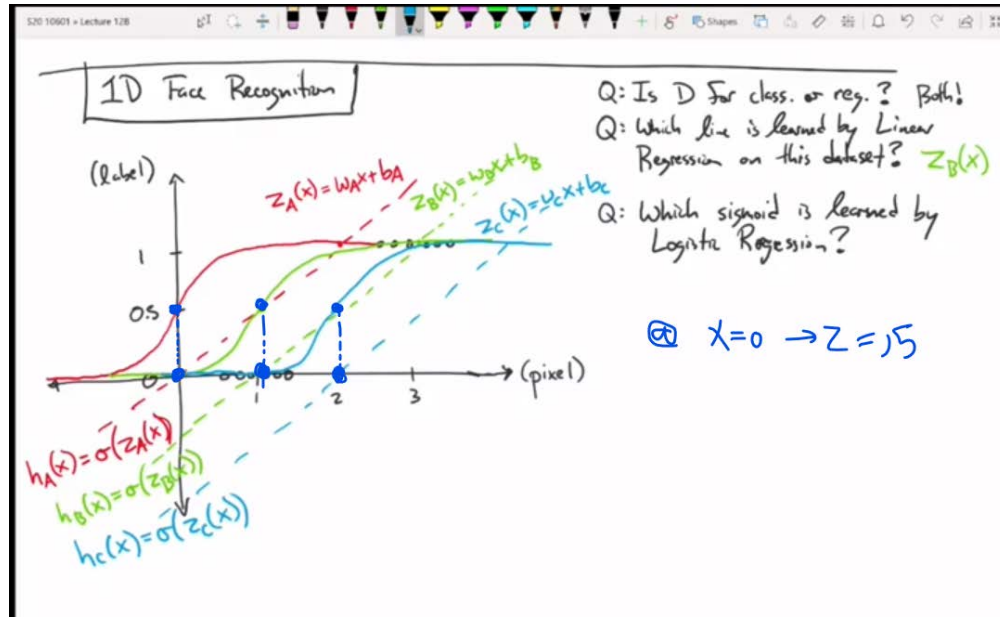 S20 10601 » Lecture 12B
Shapes
1D Face Recognition
Q: Is D for class. or reg.? Both!
Q: Which line is learned by Linear
Regression on this dataset? z_B(x)
Q: Which sigmoid is learned by
Logistic Regression?
(label)
z_A(x) = w_A x + b_A
z_B(x) = w_B x + b_B
z_C(x) = w_C x + b_C
1
0.5
0
1
2
3
(pixel)
@ x=0 → z = .5
h_A(x) = σ(z_A(x))
h_B(x) = σ(z_B(x))
h_C(x) = σ(z_C(x))